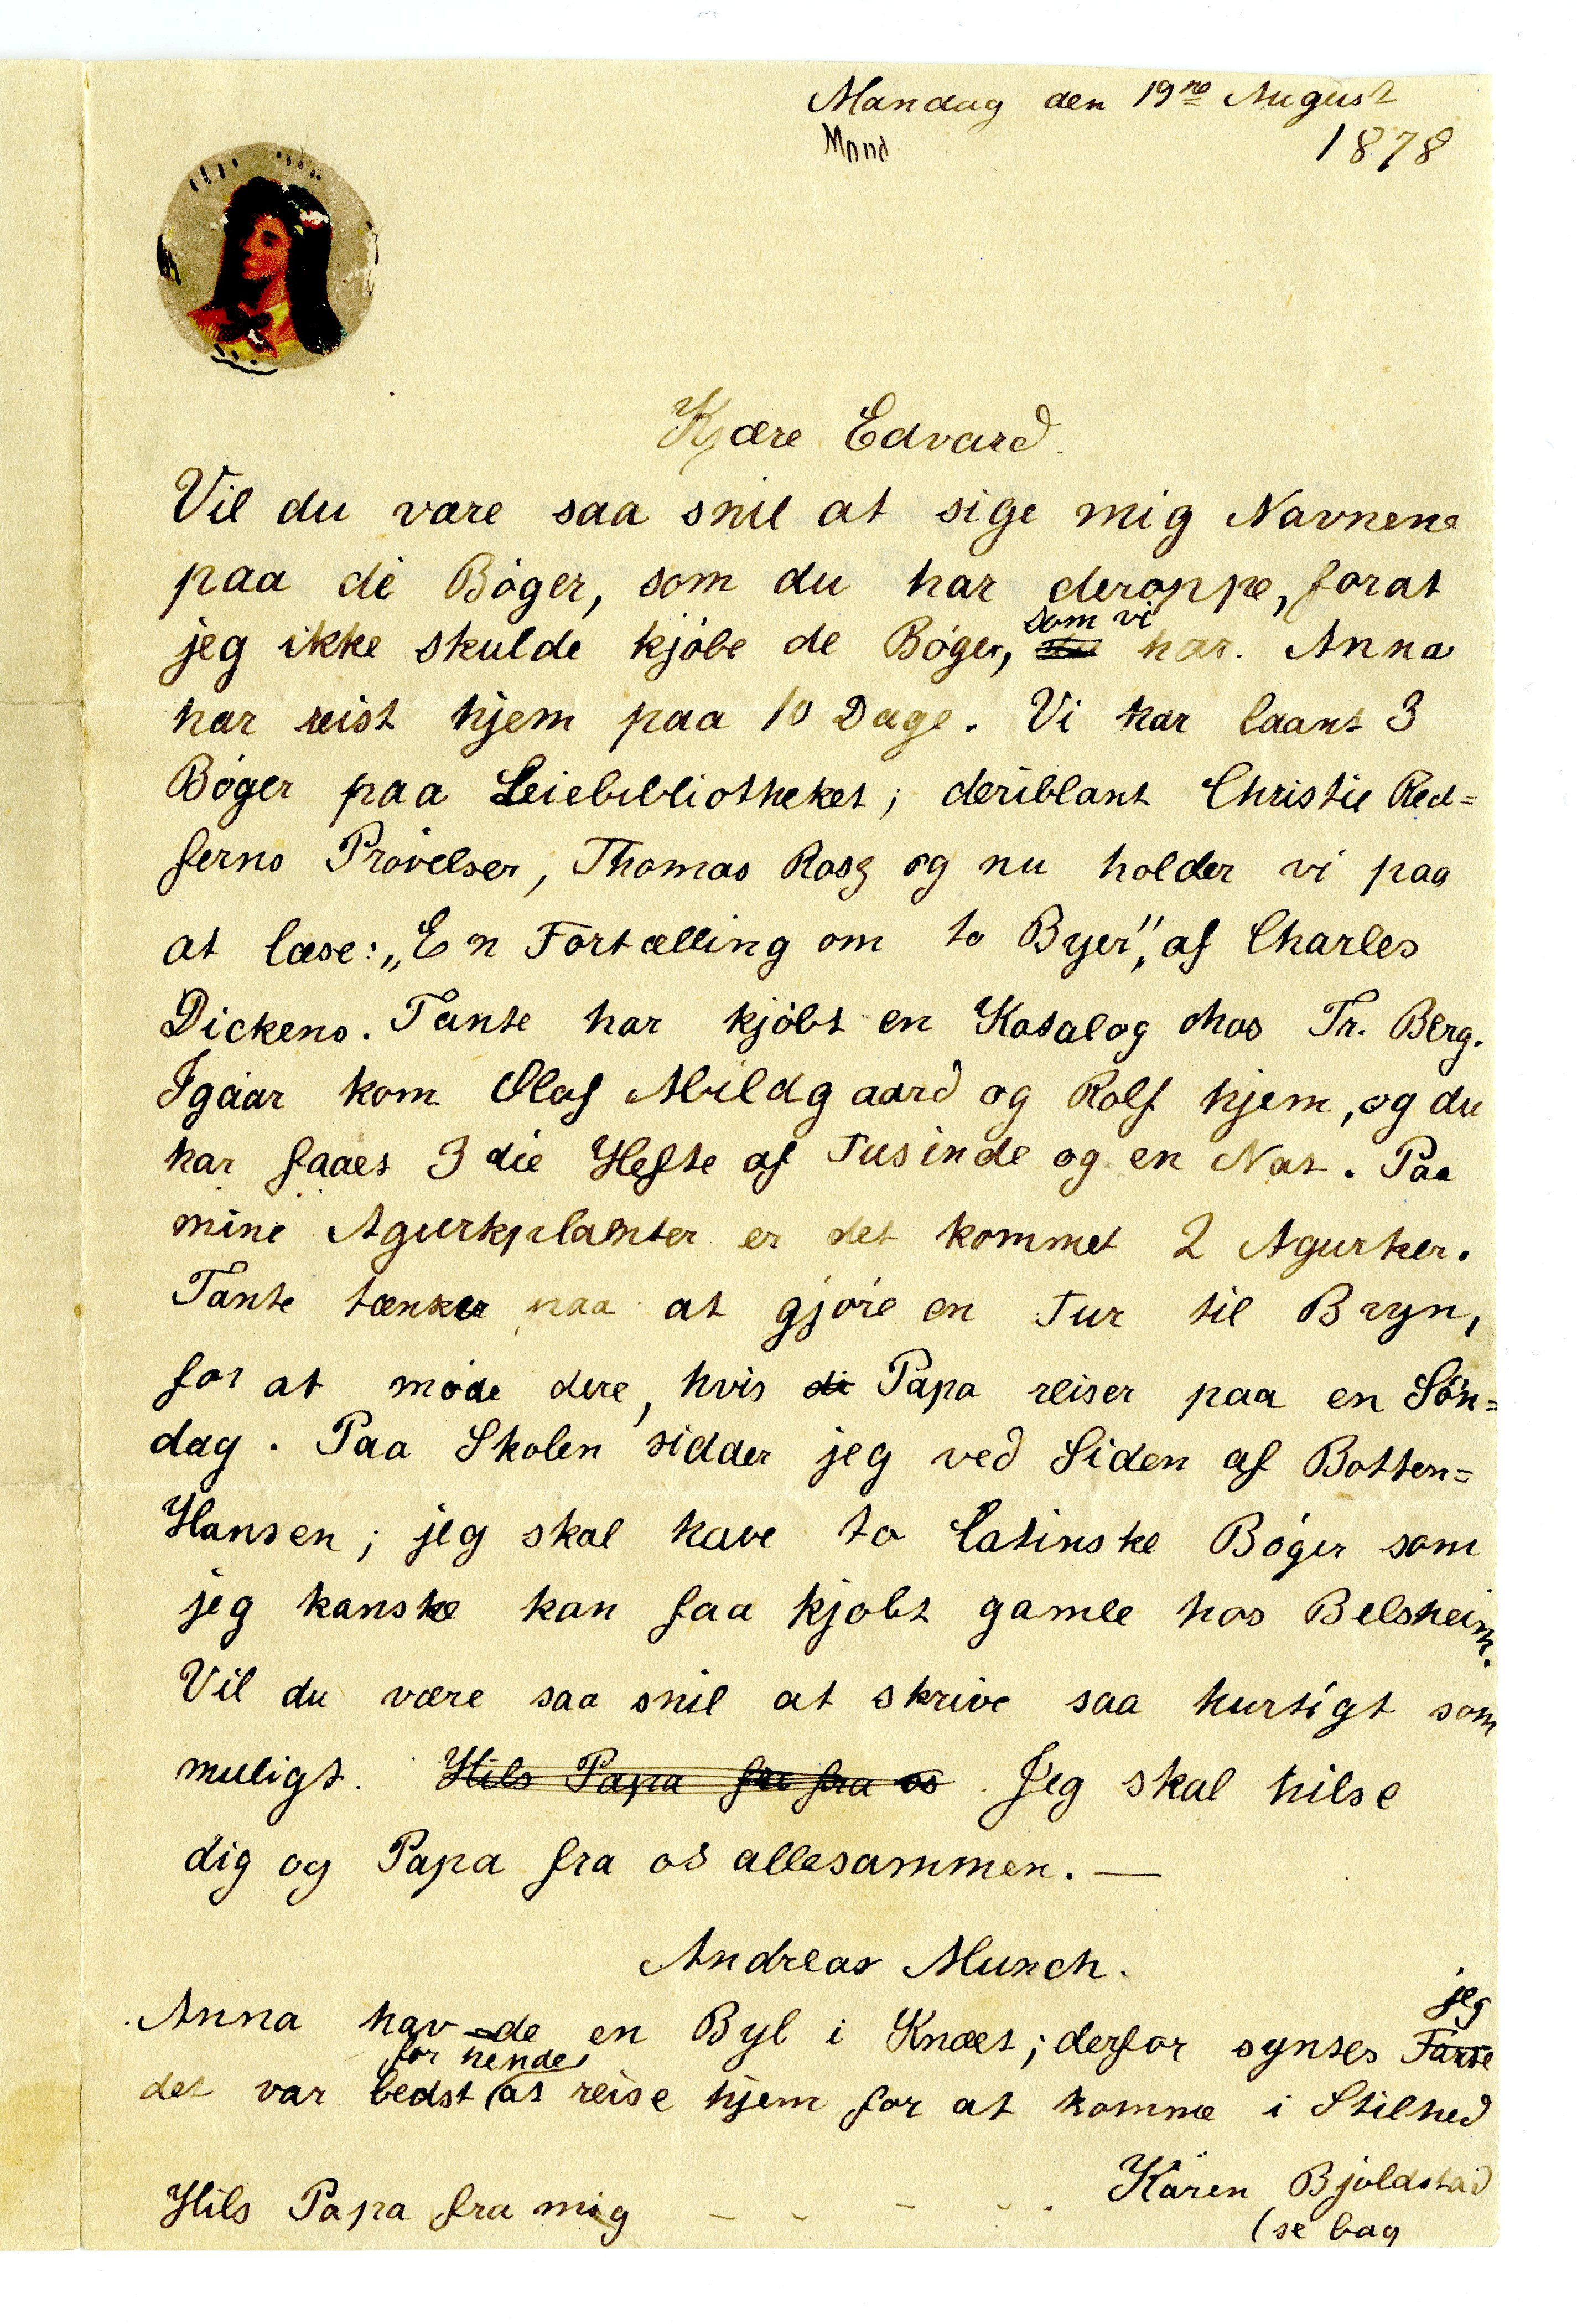 Mandag den 19no August
Mnnd 1878
Kjære Edvard.
Vil du være saa snil at sige mig Navnene
paa de Bøger, som du har deroppe, forat
som vi
jeg ikke skulde kjøbe de Bøger, har. Anna
har reist hjem paa 10 Dage. Vi har laant 3
Bøger paa Leiebibliotheket; deriblant Christie Red=
ferns Prøvelser, Thomas Ross og nu holder vi paa
at læse: „En Fortælling om to Byer", af Charles
Dickens. Tante har kjøbt en Katalog hos Tr. Berg.
Igaar kom Olaf Mildgaard og Rolf hjem, og du
har faaet 3die Hefte af Tusinde og en Nat. Paa
mine Agurkplanter er det kommet 2 Agurker.
Tante tænker paa at gjøre en Tur til Bryn,
for at møde dere, hvis de Papa reiser paa en Søn=
dag. Paa Skolen sidder jeg ved Siden af Botten=
Hansen; jeg skal have to latinske Bøger som
jeg kanske kan faa kjøbt gamle hos Belsheim.
Vil du være saa snil at skrive saa hurtigt som
muligt. Hils Papa fra os. Jeg skal hilse
dig og Papa fra os allesammen. —
Andreas Munch.
jeg
Anna havde en Byl i Knæet; derfor syntes Tante
for hende
det var bedst at reise hjem for at komme i Stilhed
Karen Bjølstad
Hils Papa fra mig
(se bag